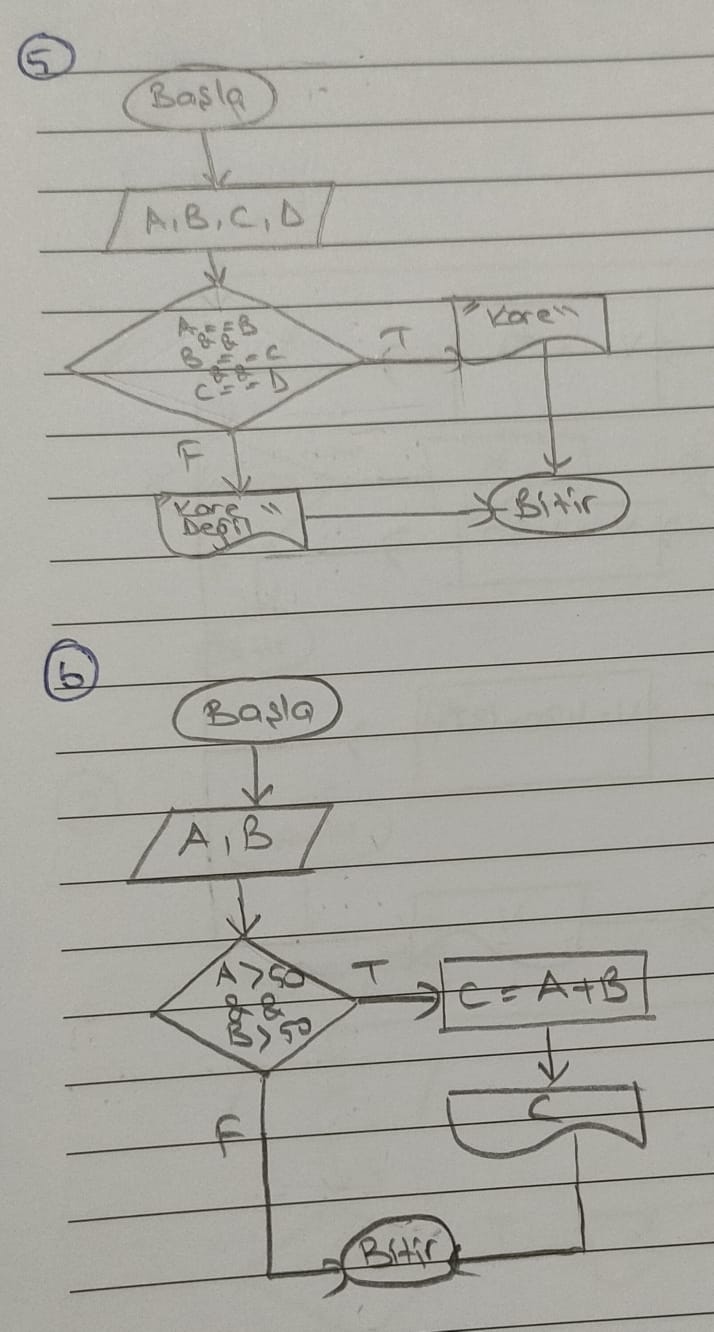 5
Başla
A, B, C, D
A == B
&&
B == C
&&
C == D
T
"Kare"
F
"Kare
Değil"
Bitir
6
Başla
A, B
A > 50
&&
B > 50
T
C = A + B
C
F
Bitir